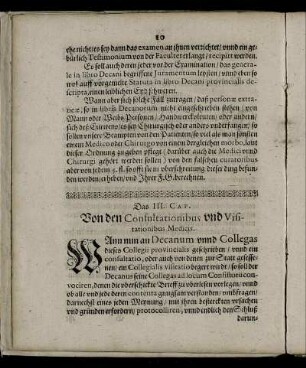 10
ehe nicht/es sey dann das examen an ihnen verrichtet/ vnnd ein ge-
bürlich Testimonium von der Facultet erlangt/recipirt werden.
Es soll auch deren jeder vor der Examination/ das genera-
le in libro Decani begriffene Juramentum leysten/ vnnd eben so
wol auff vorgemelte Statuta in libro Decani provincialis de-
scripta, einen leiblichen Eyd schweren.
Wann aber sich solche Fäll zutragen/ daß personæ extra-
neæ, so in libris Decanorum nicht eingeschrieben stehen/ von
Mann oder Weibs Personen/ Handwerckßleuten/ oder andern/
sich deß Curierens
sollen vnsere Beampten von der Facultet
einem Medico oder Chirurgo von einem dergleichen
dieser Ordnung zu geben pflegt/ darüber auch die Medici vnd
Chirurgi gehört werden sollen/ von den falschen curatoribus
aber von jedem
den werden erheben/ vnd Ihrer F. G. berechnen.
Das III. CAP.
Von den Consultationibus vnd Visi-
tationibus Medicis.
WAnn nun an Decanum vnnd Collegas
dieses Collegii provincialis geschrieben/ vnnd ein
consultatio, oder auch von denen zur Statt gesesse-
nen/ ein Collegialis visitatio begert wird/ so soll der
Decanus seine Collegas ad locum Consilii convo-
vociren, denen die vberschickte Betreff zu verlesen vorlegen/ vnnd
ob all/ vnd jede deren contenta gnugsam verstanden/ umbfragen/
darnechst eines jeden Meynung/ mit ihren bestetckten vrsachen
vnd gründen erfordern/ protocolliren/ vnnd endlich den Schluß
darun-